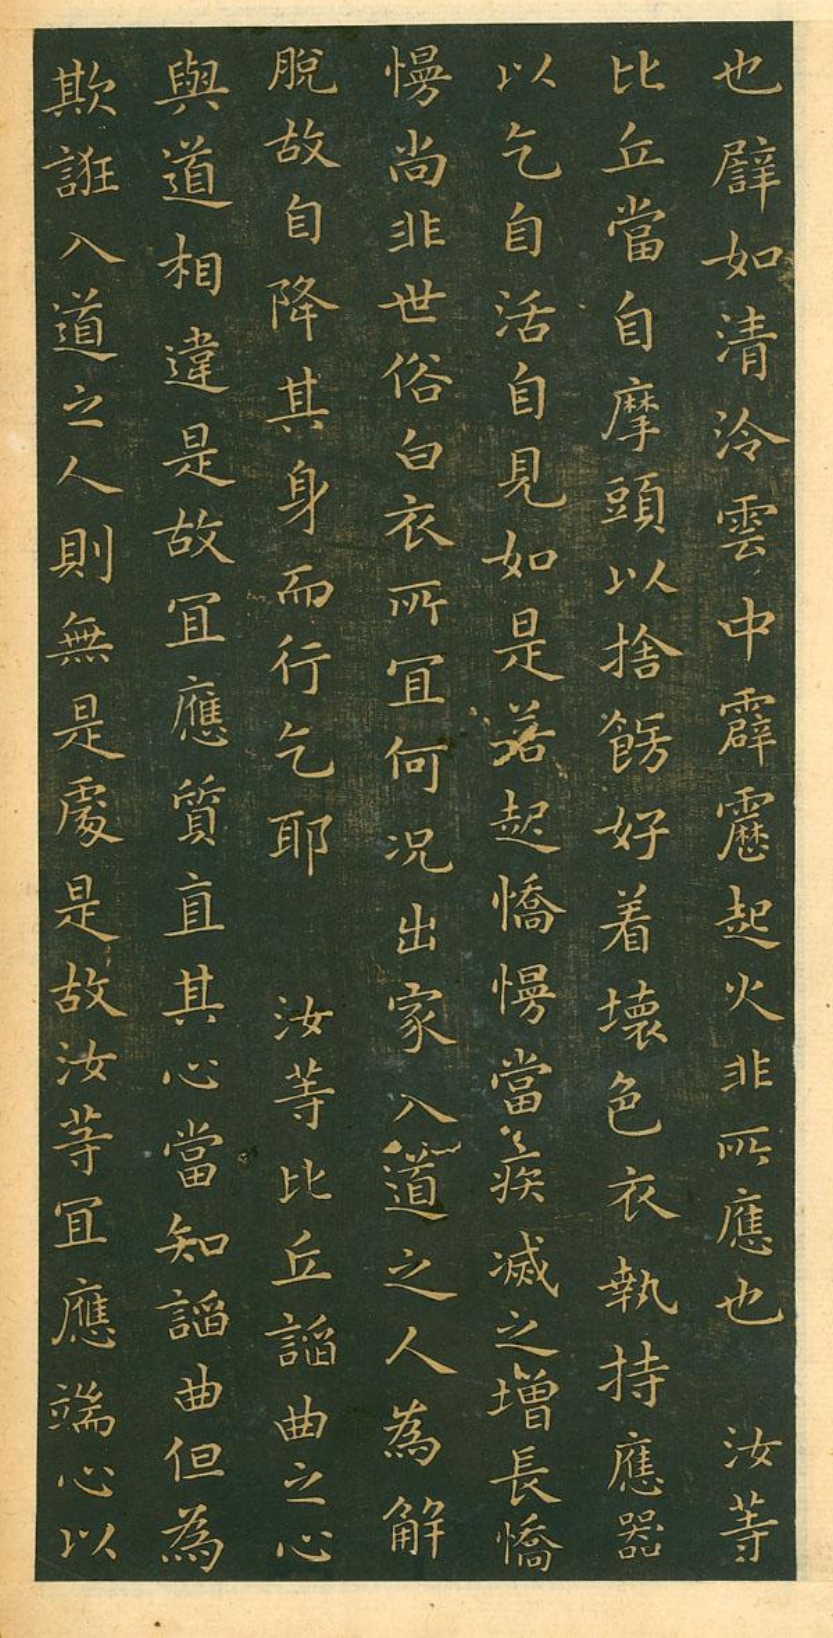 也譬如清冷雲中霹靂起火非所應也　汝等
比丘當自摩頭以捨飾好着壞色衣執持應器
以乞自活自見如是若起憍慢當疾滅之增長憍
慢尚非世俗白衣所宜何況出家入道之人為解
脫故自降其身而行乞耶　汝等比丘諂曲之心
與道相違是故宜應質直其心當知諂曲但為
欺誑入道之人則無是處是故汝等宜應端心以